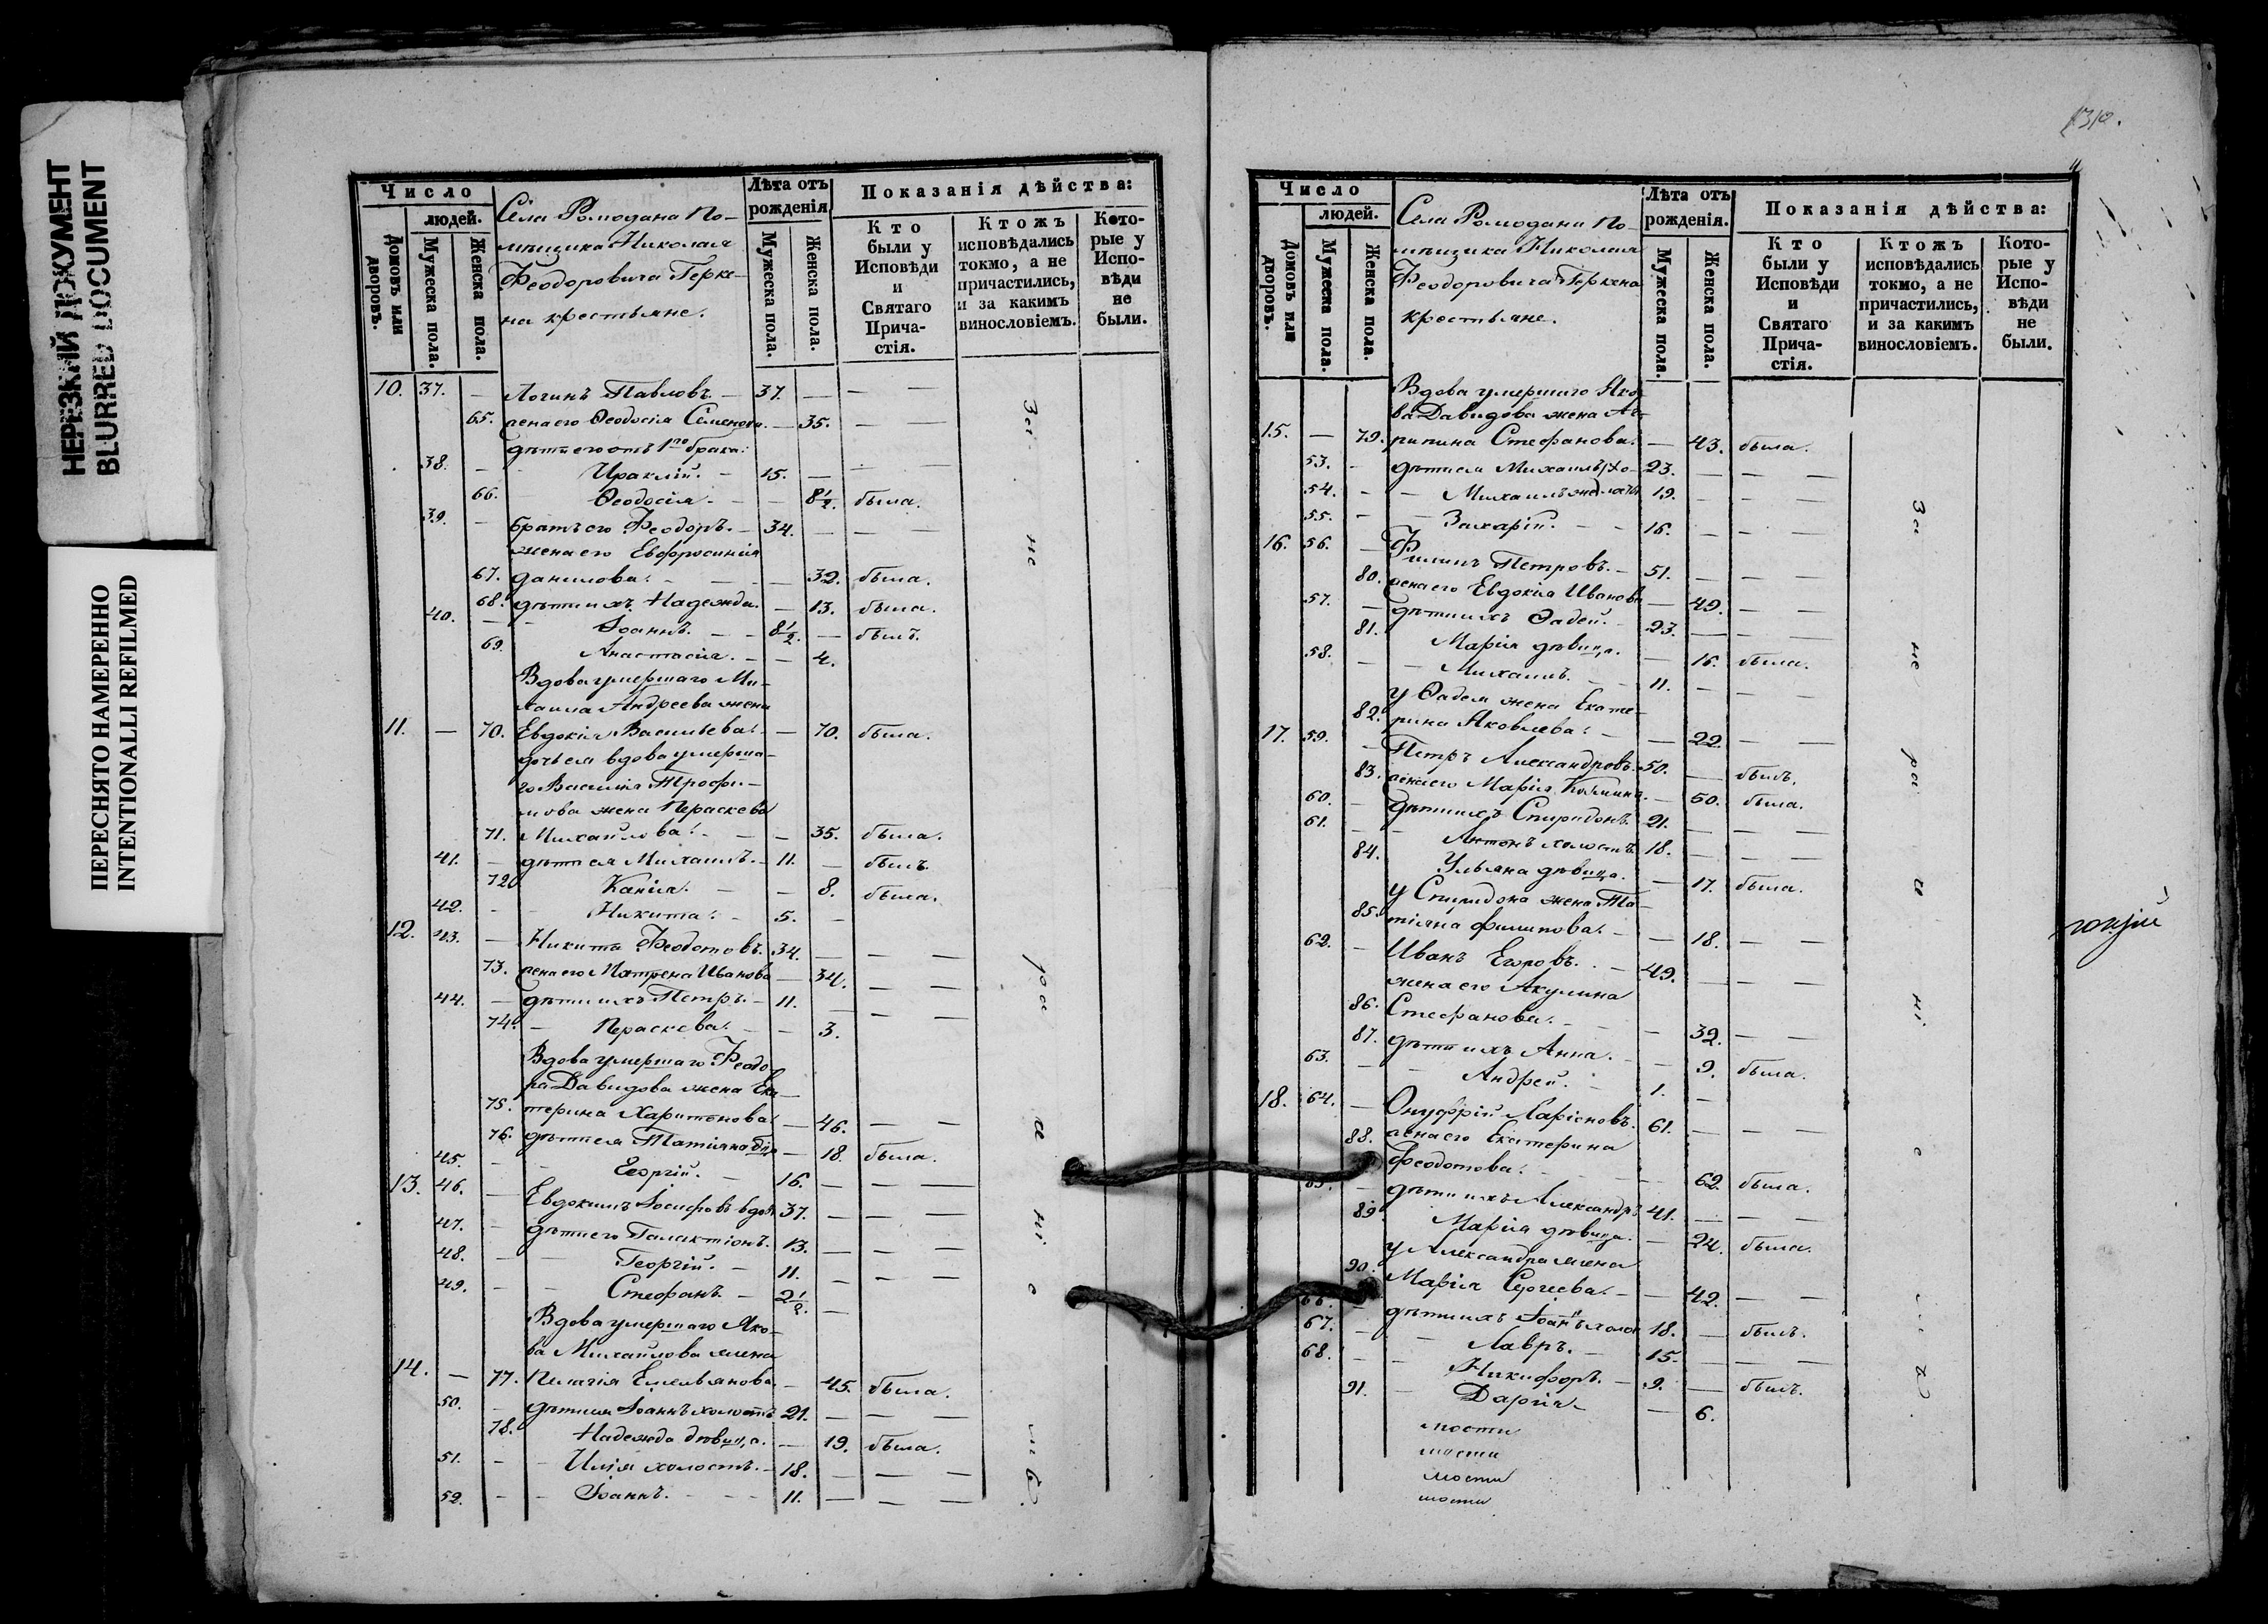 НЕРЕЗКИЙ ДОКУМЕНТ
BLURRED DOCUMENT
ПЕРЕСНЯТО НАМЕРЕННО
INTENTIONALLI REFILMED
Число
людей.
Домовъ или дворовъ.
Мужеска пола.
Женска пола.
Села Ромодана По-
мѣщика Николая
Феодоровича Герке-
на крестьяне.
Лѣта отъ рожденія
Мужеска пола.
Женска пола.
Показанія дѣйства:
Кто были у Исповѣди и Святаго Прича-стія.
Ктожъ исповѣдались токмо, а не причастились, и за какимъ винословіемъ.
Кото-рые у Испо-вѣди не были.
10. 37. – Логинъ Павловъ. – 37. – – –
65. жена его Ѳеодосія Семенова. – 35. – –
дѣти его отъ 1го брака:
38. – – Ираклій. – 15. – – –
66. – Ѳеодосія. – – 8½. была.
39. – братъ его Феодоръ. – 34. – –
жена его Евфросинія
67. данилова. – – 32. была.
68. дѣти ихъ Надежда. – 13. была.
40. – – Іоаннъ. – – 8½. – былъ.
69. Анастасія. – – 4.
Вдова умершаго Ми-
хаила Андреева жена
11. – 70. Евдокія Васильева. – 70. была.
дочь ея вдова умерша-
го Василія Трофи-
мова жена Параскева
71. Михайлова. – – 35. была.
41. – дѣти ея Михаилъ. – 11. – былъ.
72. – – 8. была.
42. – – Никита. – 5. –
12. 43. – Никита Феодотовъ. 34. – – –
73. жена его Матрена Иванова – 34. – –
44. – дѣти ихъ Петръ. – 11. – – –
74. – Параскева. – – 3.
Вдова умершаго Феодо-
ра Давидова жена Ека-
75. терина Харитонова. – 46. – –
76. дѣти ея Татіяна – 18. была.
45. – – Георгій. – 16. – – –
13. 46. – Евдокимъ Іосифовъ вдов. 37. – – –
47. – дѣти его Галактіонъ. 13. – – –
48. – – Георгій. – 11. – – –
49. – – Стефанъ. – 2½. –
Вдова умершаго Яко-
ва Михайлова жена
14. – 77. Пелагія Емельянова. – 45. была.
50. – дѣти ея Іоаннъ холостъ 21. – – –
78. Надежда дѣвица. – 19. была.
51. – – Илія холостъ. – 18. – – –
52. – – Іоаннъ. – – – 11. – – –
За не ра д ні е мъ.
1310.
Число
людей.
Домовъ или дворовъ.
Мужеска пола.
Женска пола.
Села Ромодана По-
мѣщика Николая
Феодоровича Геркена
крестьяне.
Лѣта отъ рожденія.
Мужеска пола.
Женска пола.
Показанія дѣйства:
Кто были у Исповѣди и Святаго Прича-стія.
Ктожъ исповѣдались токмо, а не причастились, и за какимъ винословіемъ.
Кото-рые у Испо-вѣди не были.
Вдова умершаго Яко-
ва Давидова жена Аг-
15. – 79. рипина Стефанова. – 43. была.
53. – дѣти ея Михаилъ хо- 23. – – –
54. – – Михаилъ 19. – – –
55. – – Захарій. – – 16. – – –
16. 56. – Филипъ Петровъ. – 51. – – –
80. жена его Евдокія Иванова – 49. – –
57. – дѣти ихъ Ѳадей. – 23. – – –
81. Марія дѣвица. – 16. была.
58. – – Михаилъ. – – 11. – – –
у Ѳадея жена Екате-
82. рина Яковлева. – – 22. – –
17. 59. – Петръ Александровъ. 50. – былъ.
83. жена его Марія – 50. была.
60. – дѣти ихъ Спиридонъ. 21. – – –
61. – – Антонъ холостъ 18. – – –
84. Ульяна дѣвица. – 17. была.
у Спиридона жена Та-
85. тіяна филипова. – – 18. – –
62. – Иванъ Егоровъ. – 49. – – –
жена его Акулина
86. Стефанова. – – 32. – –
87. дѣти ихъ Анна. – – 9. была.
63. – – Андрей. – 1. –
18. 64. – Онуфрій Ларіоновъ. 61. – – –
88. жена его Екатерина
Феодотова. – – 62. была.
65. – дѣти ихъ Александръ 41. – – –
89. Марія дѣвица. – 24. была.
у Александра жена
90. Марія Сергеева. – – 42. – –
66. дѣти ихъ Іоаннъ холос 18. – былъ.
67. – – Лавръ. – 15. – – –
68. – – Никифоръ. – 9. – былъ.
91. – Дарія – – 6.
За не ра д ні е мъ.
мости
мости
мости
мости